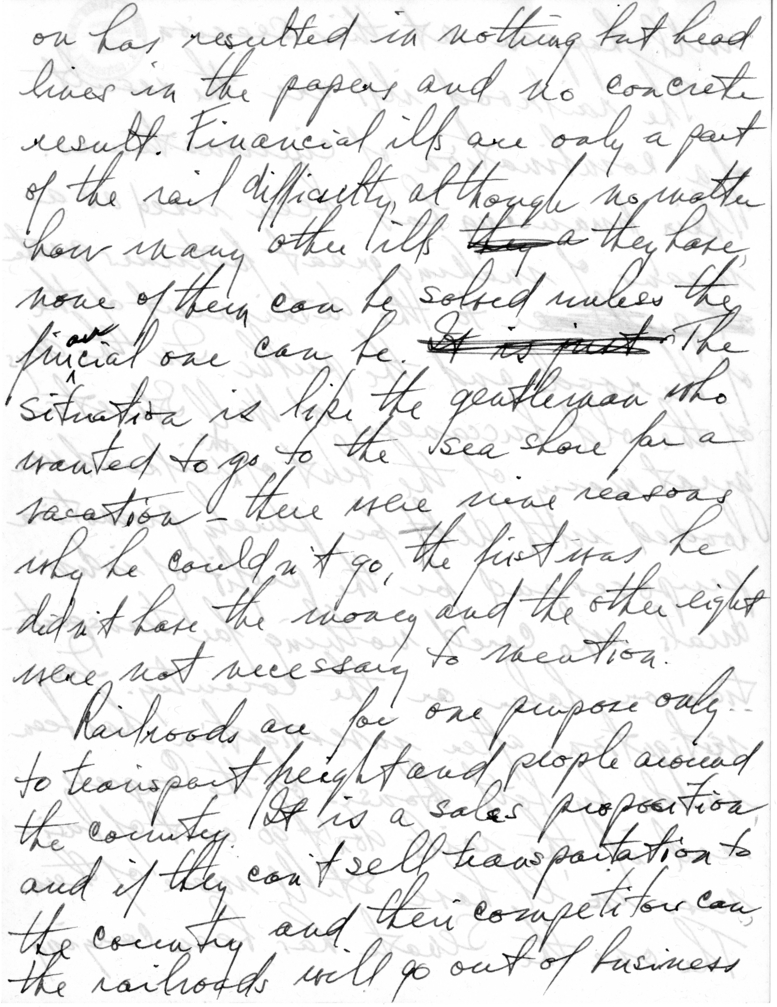 on has resulted in nothing but head
lines in the papers and no concrete
result. Financial ills are only a part
of the rail difficulty, although no matter
how many other ills they a they have,
none of them can be solved unless the
financial one can be. It is just The
situation is like the gentleman who
wanted to go to the sea shore for a
vacation - there were nine reasons
why he couldn't go, the first was he
didn't have the money and the other eight
were not necessary to mention.
Railroads are for one purpose only -
to transport freight and people around
the country. It is a sales proposition,
and if they can't sell transportation to
the country and their competitor can,
the railroads will go out of business